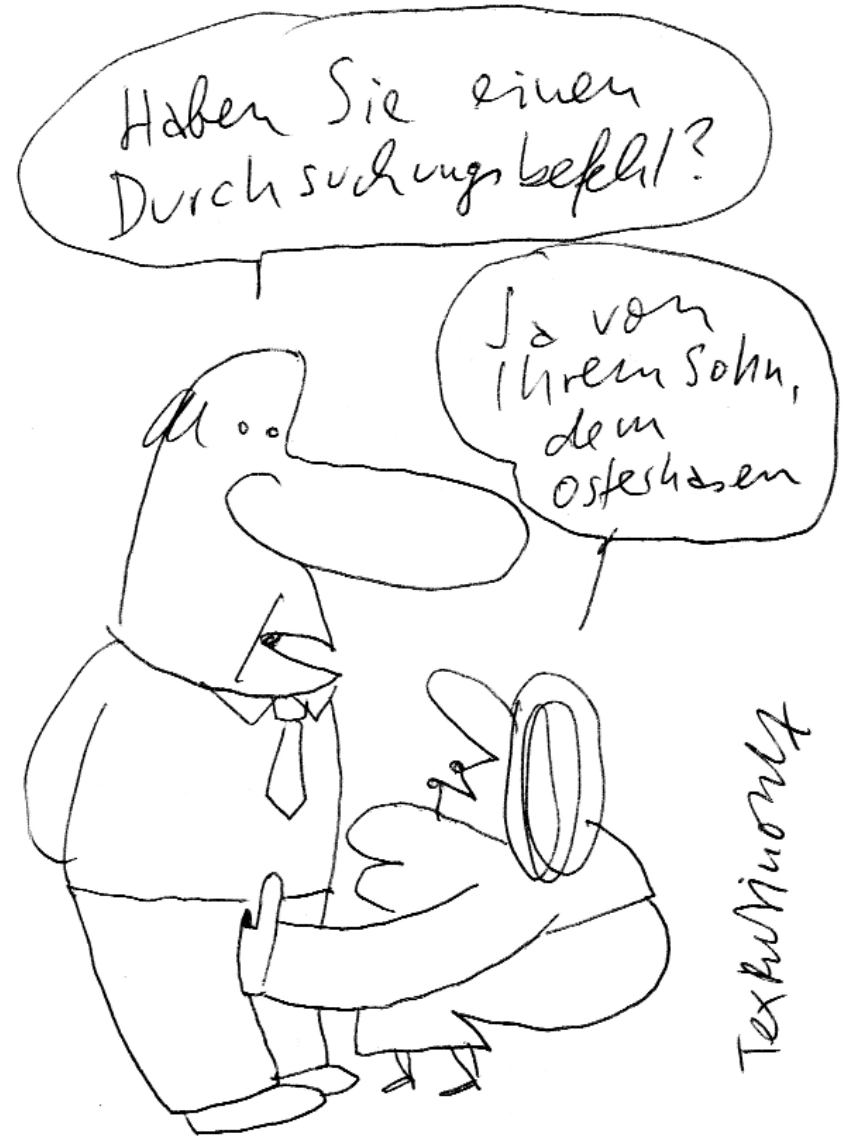 Haben Sie einen
Durchsuchungsbefehl?
Ja von
Ihrem Sohn,
dem
Osterhasen
Tex Rubinowitz